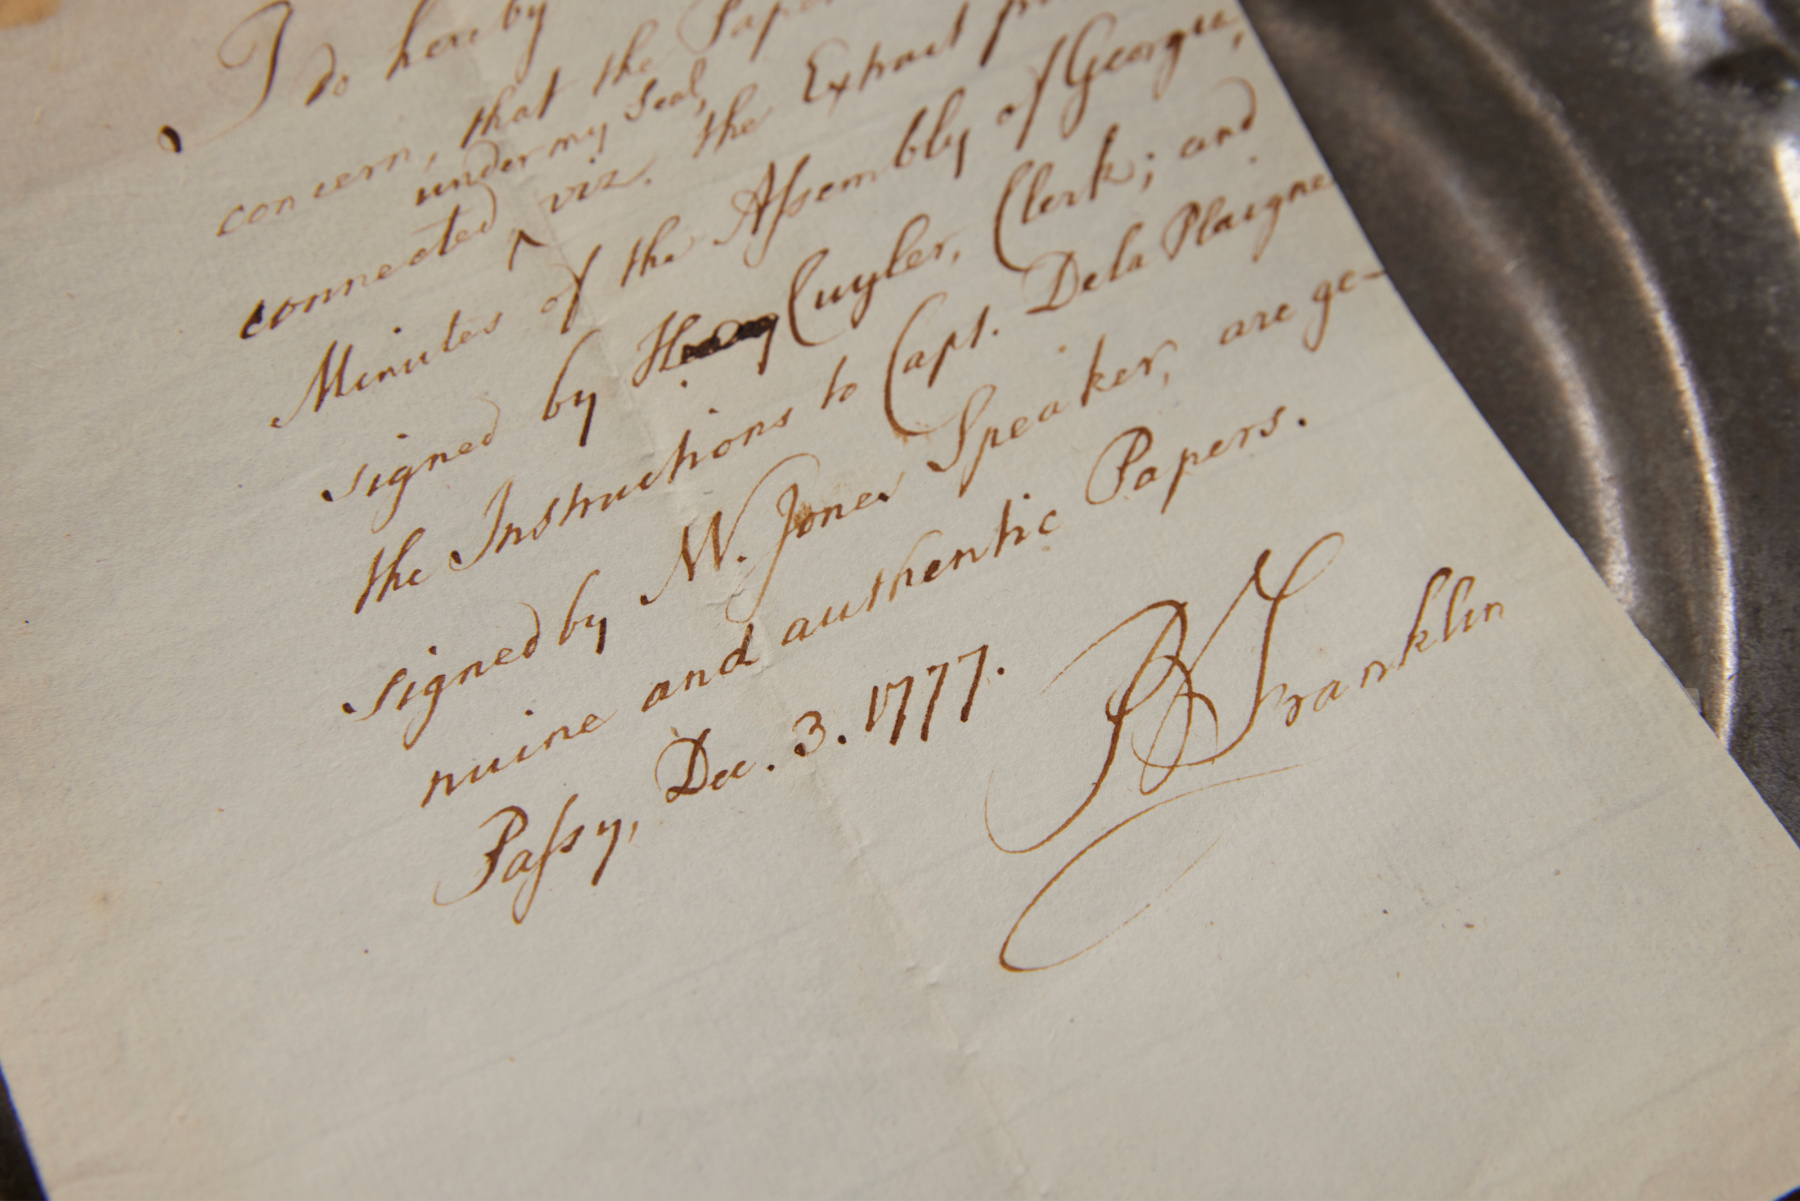 I do hereby
concern, that the Paper
under my Seal,
connected ^ viz. the Extract
Minutes of the Aſsembly of Georgia,
signed by Cuyler, Clerk; and
the Instructions to Capt. De la Plaigne
signed by W. Jones Speaker, are ge-
nuine and authentic Papers.
Paſsy, Dec. 3. 1777.
B Franklin